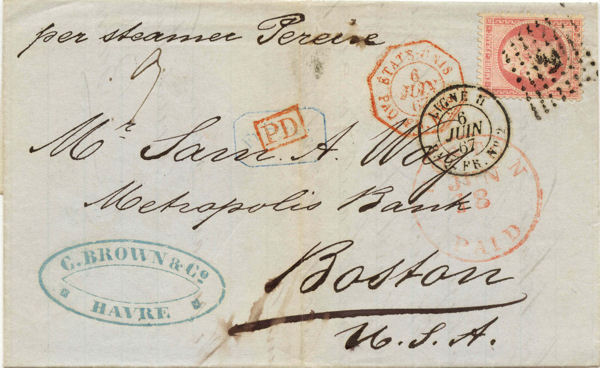 per steamer Pereire
ÉTATS-UNIS
6
JUIN
67
LIGNE H
6
JUIN
67
PAQ. FR. Nº 2
PD
Mr Sam A. Way
Metropolis Bank
JUN
18
PAID
C. BROWN & Co
HAVRE
Boston
U.S.A.